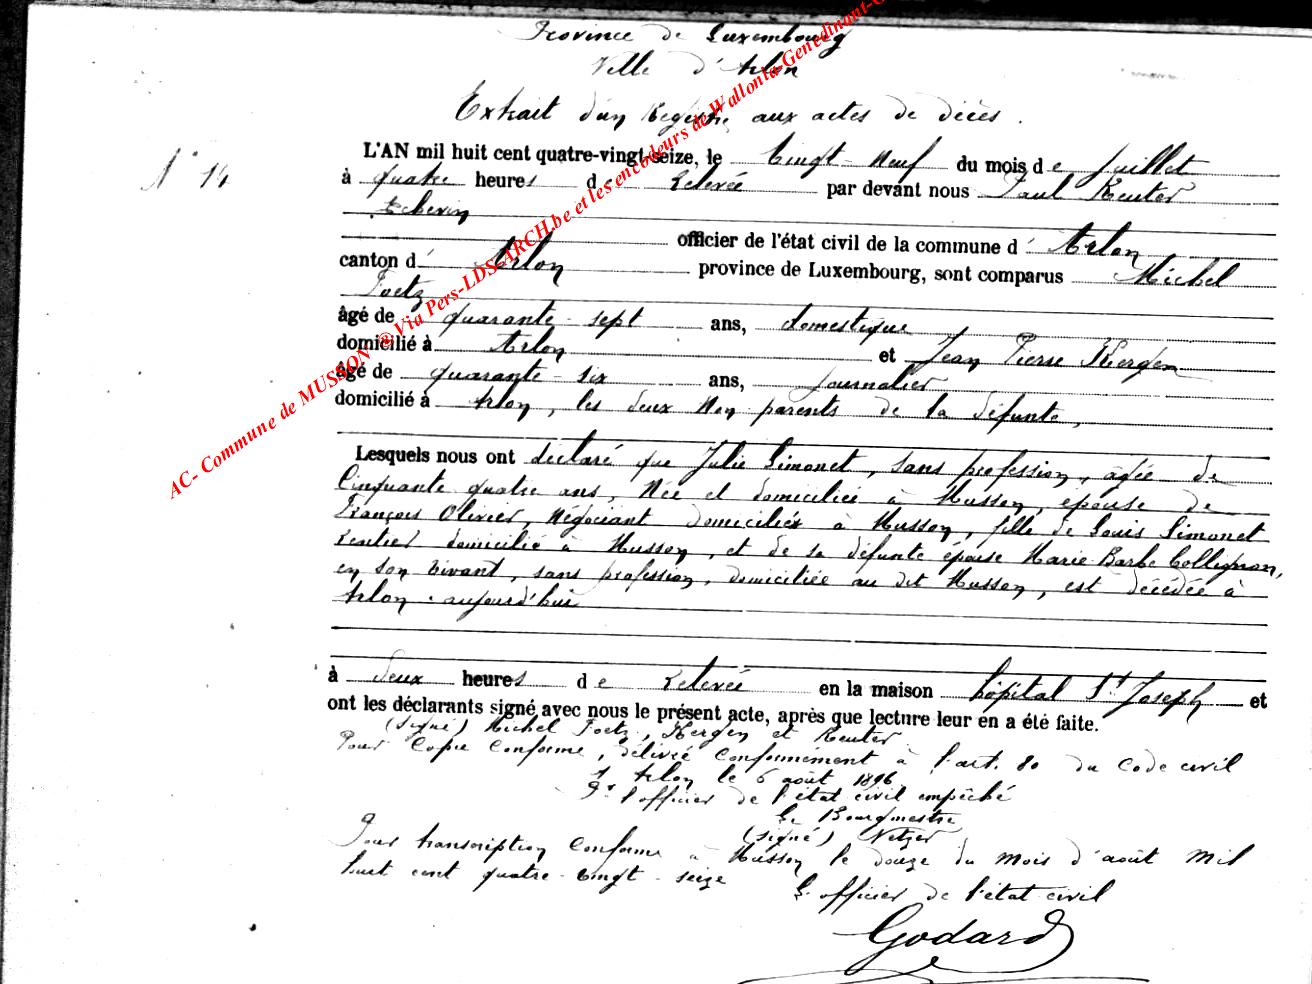 Province de Luxembourg
Ville d'Arlon
Extrait d'un Registre aux actes de décès.
N° 14
L'AN mil huit cent quatre-vingt-seize, le Vingt-Neuf du mois de Juillet
à quatre heures de Relevée par devant nous Paul Reuter
Echevin
officier de l'état civil de la commune d' Arlon
canton d' Arlon province de Luxembourg, sont comparus Michel
Foetz
âgé de quarante-sept ans, domestique
domicilié à Arlon et Jean Pierre Kergen
âgé de quarante-six ans, Journalier
domicilié à Arlon, les deux Non parents de la défunte,
Lesquels nous ont déclaré que Julie Simonet, sans profession, agée de
Cinquante quatre ans, Née et domiciliée à Musson, épouse de
François Olivier, Négociant domicilié à Musson, fille de Louis Simonet
Rentier domicilié à Musson, et de sa défunte épouse Marie Barbe Collignon,
en son vivant, sans profession, domiciliée au dit Musson, est décédée à
Arlon aujourd'hui
à deux heures de Relevée en la maison hôpital St Joseph et
ont les déclarants signé avec nous le présent acte, après que lecture leur en a été faite.
(signé) Michel Foetz, Kergen et Reuter
Pour Copie Conforme, délivrée Conformément à l'art. 80 du Code civil
Arlon le 6 août 1896
Pr l'officier de l'état civil empêché
Le Bourgmestre
(signé) Netzer
Pour transcription Conforme à Musson le douze du mois d'août mil
huit cent quatre-vingt-seize
L'officier de l'état civil
Godard
AC- Commune de MUSSON @ Via Pers-LDS-ARCH.be et les encodeurs de Wallonia-Genedinant-G